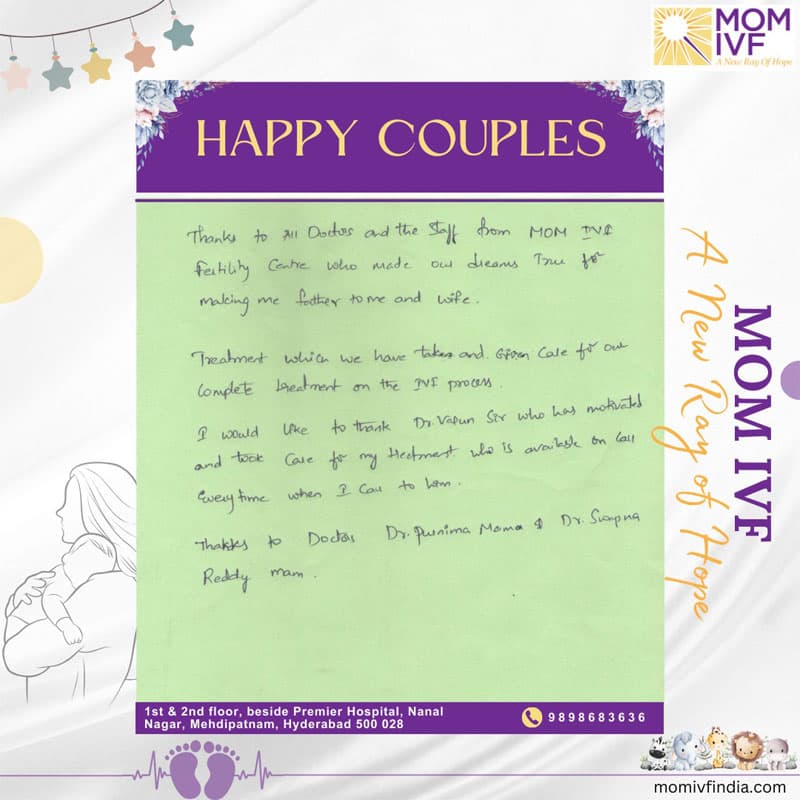 MOM
IVF
A New Ray Of Hope
HAPPY COUPLES
Thanks to All Doctors and the Staff from MOM IVF
Fertility Centre who made our dreams True for
making me father to me and wife.
Treatment which we have taken and Given Care for our
Complete treatment on the IVF process.
I would like to thank Dr. Varun Sir who has motivated
and took Care for my treatment who is available on Call
Everytime when I Call to him.
Thakks to Doctors Dr. Purnima Mama & Dr. Swapna
Reddy mam.
MOM IVF
A New Ray of Hope
1st & 2nd floor, beside Premier Hospital, Nanal
Nagar, Mehdipatnam, Hyderabad 500 028
9898683636
momivfindia.com